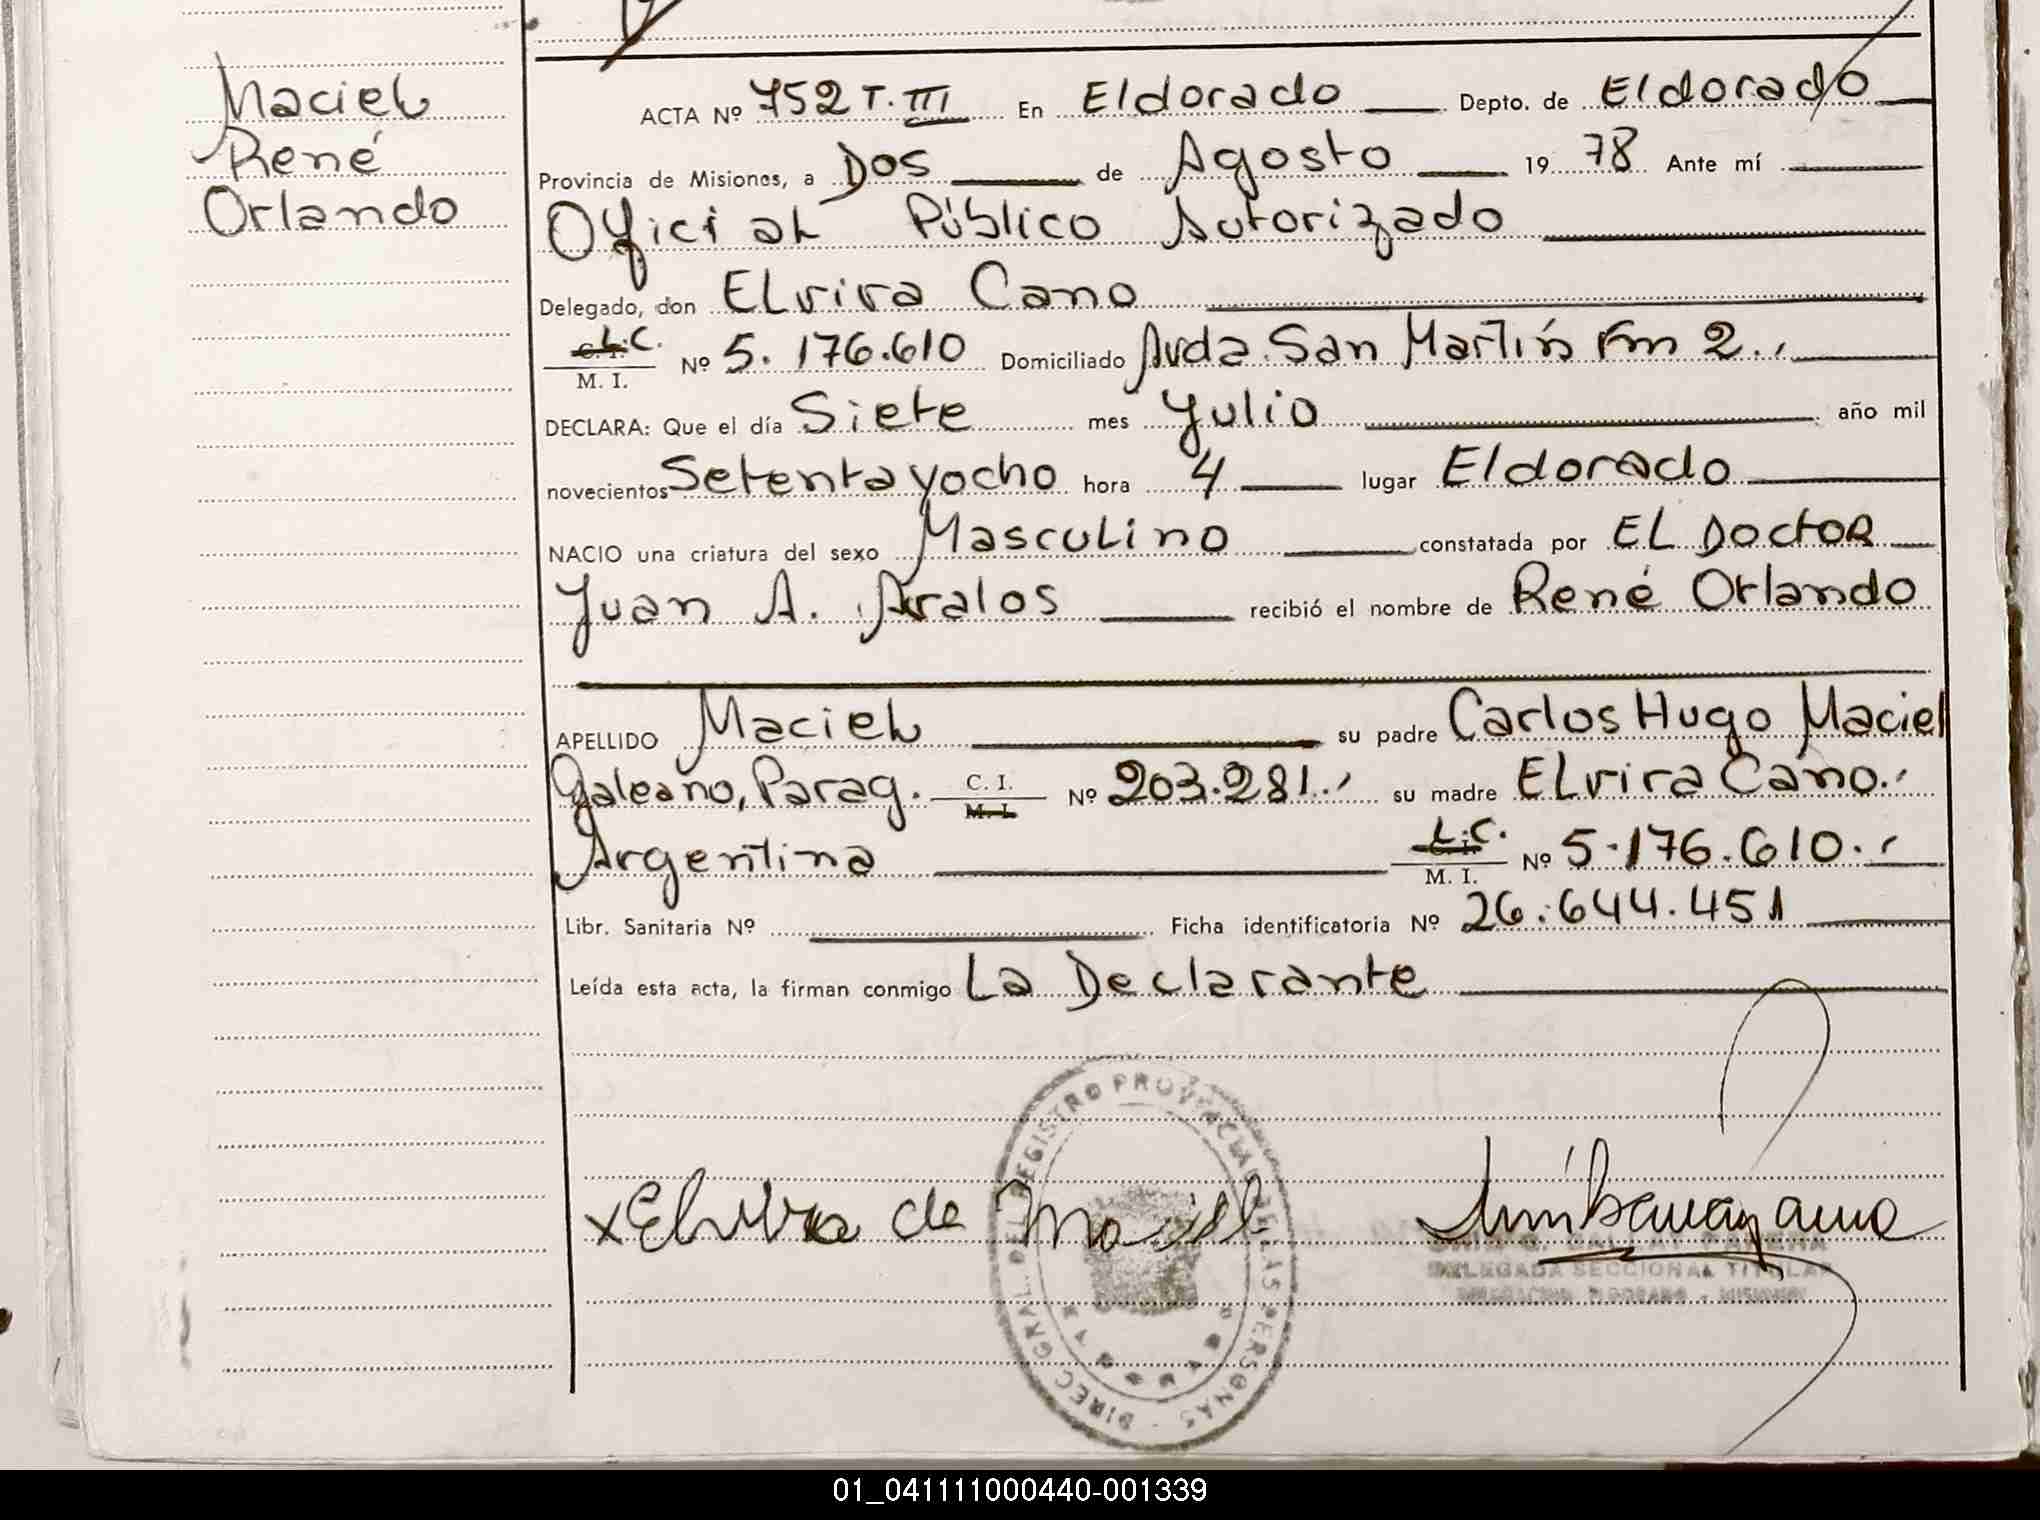 Maciel
René
Orlando
ACTA Nº 752 T. III En Eldorado Depto. de Eldorado
Provincia de Misiones, a Dos de Agosto 19 78 Ante mí
Oficial Público Autorizado
Delegado, don Elvira Cano
L.C.
M. I. Nº 5.176.610 Domiciliado Avda. San Martín Km 2.
DECLARA: Que el día Siete mes Julio año mil
novecientos Setenta y ocho hora 4 lugar Eldorado
NACIO una criatura del sexo Masculino constatada por El Doctor
Juan A. Avalos recibió el nombre de René Orlando
APELLIDO Maciel su padre Carlos Hugo Maciel
Galeano, Parag. C. I. M. I. Nº 203.281. su madre Elvira Cano.
Argentina L.C. M. I. Nº 5.176.610.
Libr. Sanitaria Nº Ficha identificatoria Nº 26.644.451
Leída esta acta, la firman conmigo La Declarante
DIREC. GRAL. DEL REGISTRO PROVINCIAL DE LAS PERSONAS
x Elvira de Maciel
DELEGADA SECCIONAL TITULAR
01_041111000440-001339